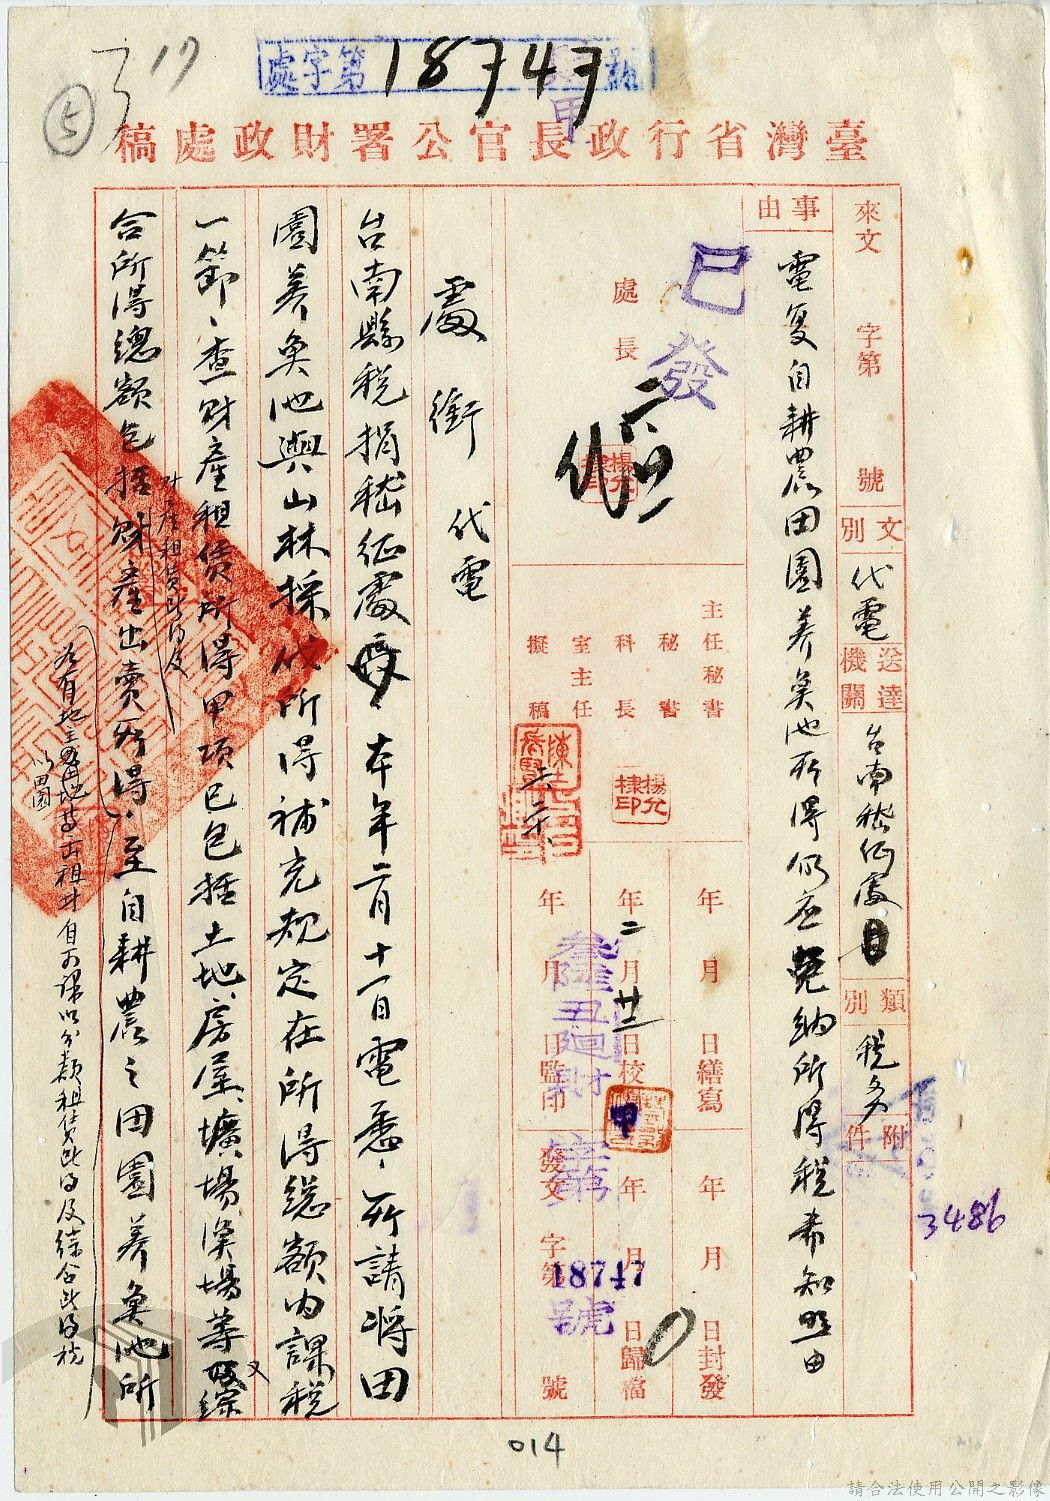 處字第18747號
甲
17
5
臺灣省行政長官公署財政處稿
來文 字第 號
文別 代電
送達機關 台南稅征處
類別 稅務
附件
事由 電复自耕農田園養魚池所得仍应免納所得稅希知照由
已發
處長
主任秘書
秘書
科長
室主任
擬稿
楊允棣印
年 月 日繕寫
年二月廿二日校
年 月 日監印
年 月 日封發
年 月 日歸檔
發文 字第18747號
處銜 代電
台南縣稅捐稽征處 本年二月十一日電悉、所請將田
園養魚池與山林採伐所得補充規定在所得總額內課稅
一節、查財產租賃所得甲項已包括土地房屋、壙場、漁場等又綜
合所得總額包括財產租賃所得及財產出賣所得、至自耕農之田園養魚池所
如有地主以田園地等出租時自可課以分類租賃所得及綜合所得稅
3486
014
請合法使用公開之影像